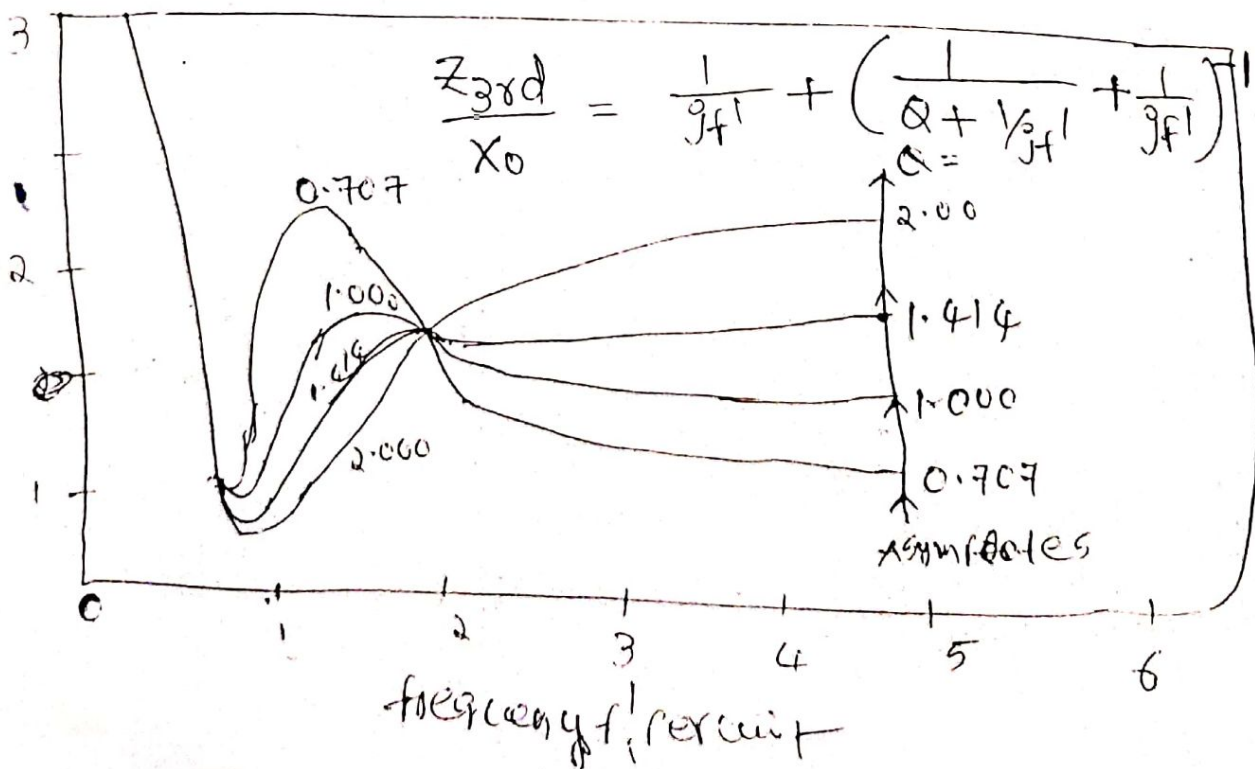 3
2
1
0
Z3rd/X0 = 1/jf' + (1/(Q + 1/jf') + 1/jf')^-1
Q =
0.707
1.000
1.414
2.000
2.00
1.414
1.000
0.707
Asymptotes
1 2 3 4 5 6
frequency f', per unit